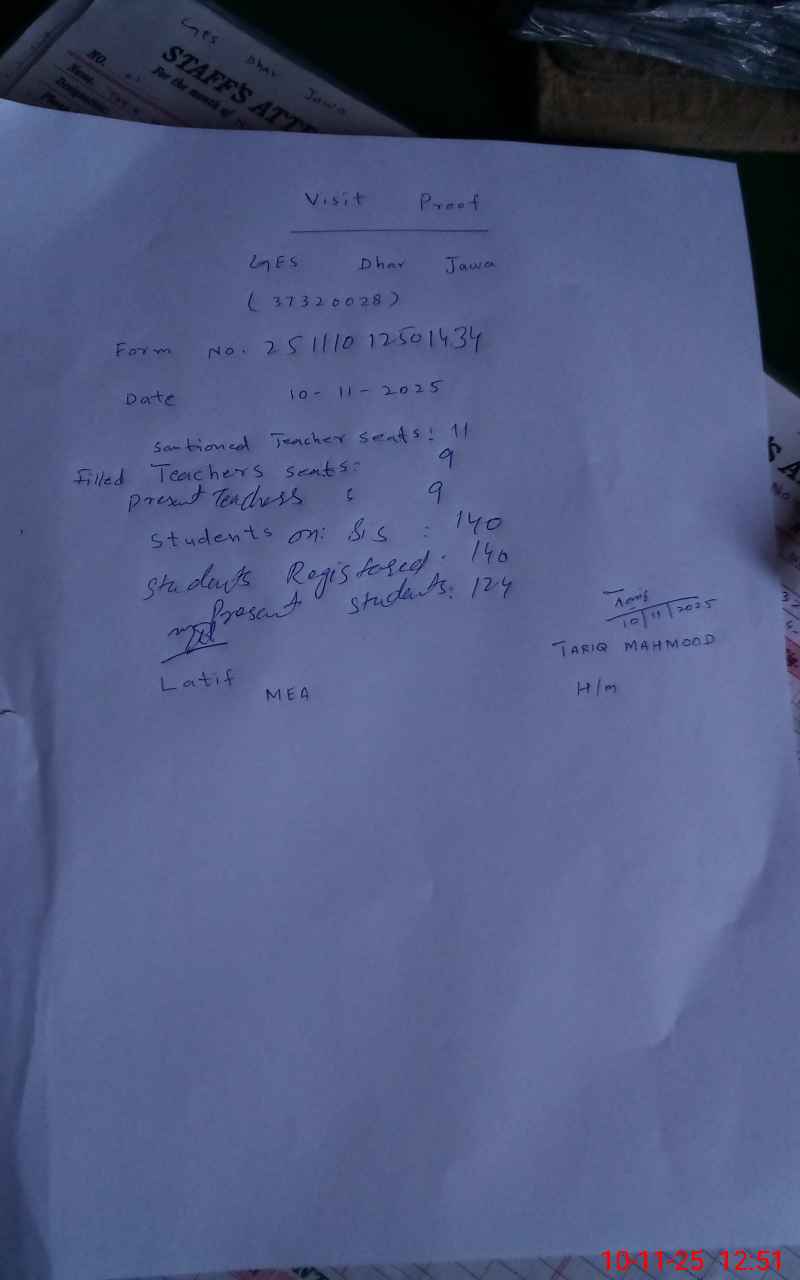 GES Dhar Jawa
STAFF'S ATTE
For the month of
NO.
Name
Designation
Visit Proof
GES Dhar Jawa
(37320028)
Form No. 251110 12501434
Date 10-11-2025
Santioned Teacher seats: 11
Filled Teachers seats: 9
Present Teachers : 9
Students on: SIS : 140
Students Registered. 140
Present students: 124
Tariq
10/11/2025
TARIQ MAHMOOD
H/m
Latif
MEA
10-11-25 12:51